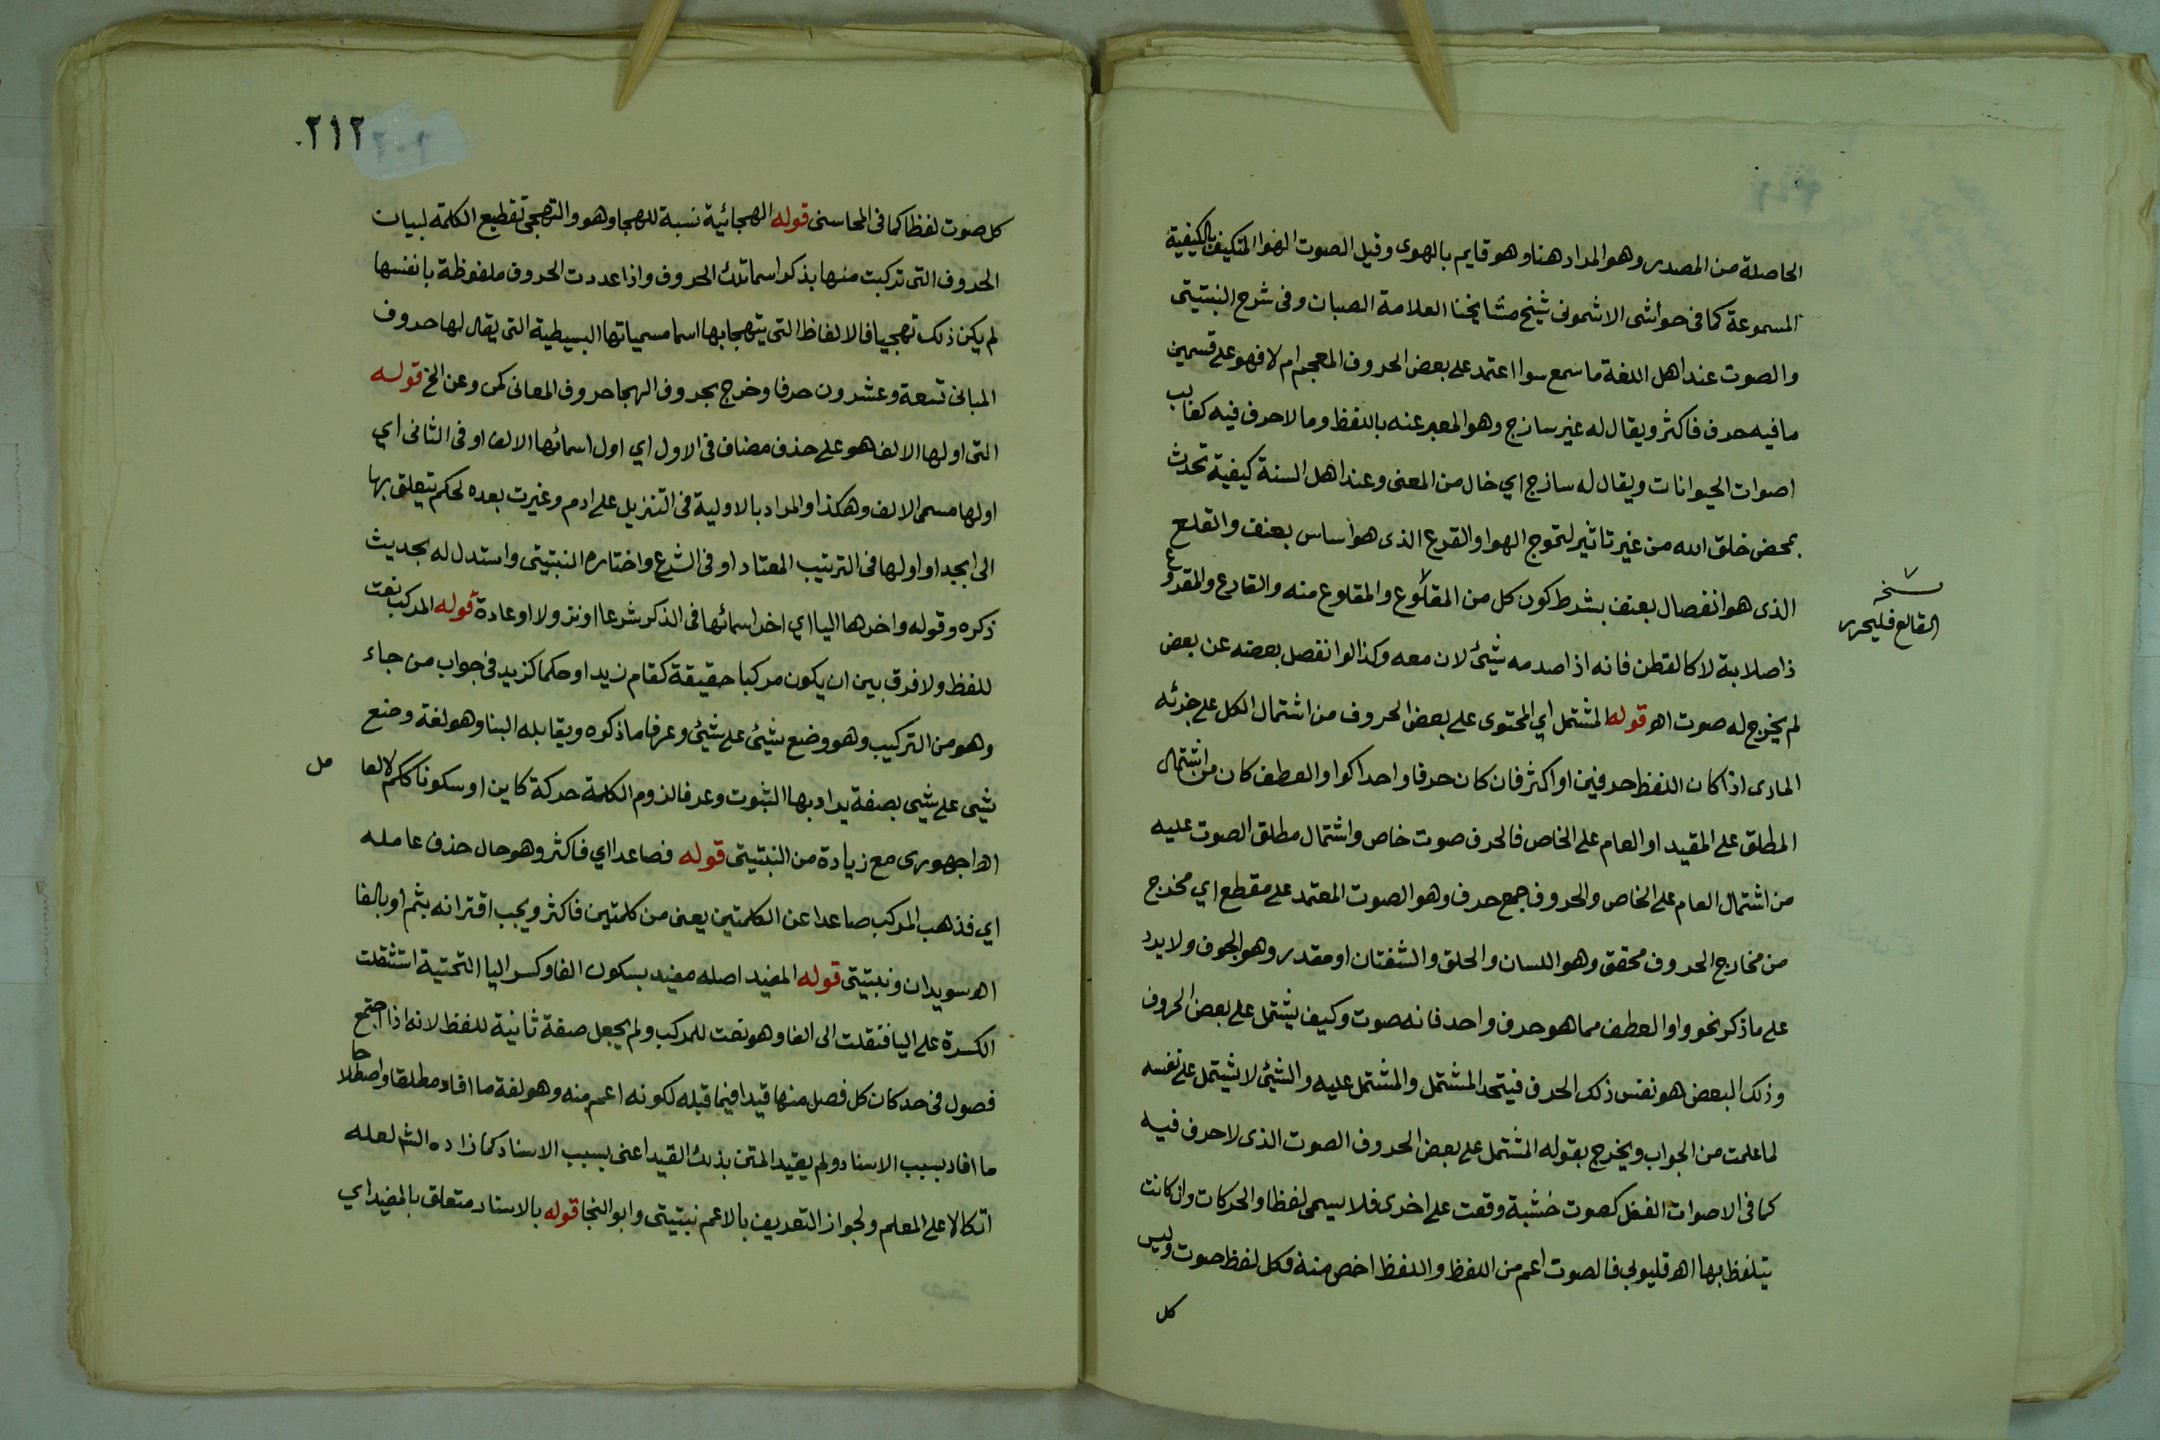 الحاصلة من المصدر وهو المراد هنا وهو قايم بالهوى وقيل الصوت الهوا المتكيف بالكيفية
المسموعة كما فى حواشى الاشمونى شيخ مشايخنا العلامة الصبان وفى شرح النبتيتى
والصوت عند اهل اللغة ما سمع سوا اعتمد على بعض الحروف المعجم ام لا فهو على قسمين
ما فيه حرف فاكثر ويقال له غير سازج وهو المعبر عنه باللفظ وما لا حرف فيه كغالب
اصوات الحيوانات ويقال له سازج اي خال من المعنى وعند اهل السنة كيفية تحدث
بمحض خلق الله من غير تاثير لتموج الهوا والقرع الذى هو اساس بعنف والقلع
الذى هو انفصال بعنف بشرط كون كل من المقلوع والمقلوع منه والقارع والمقروع
نسخه
القالع فليحرر
ذا صلابة لا كالقطن فانه اذا صدمه شيئ لان معه وكذا لو انفصل بعضه عن بعض
لم يخرج له صوت اهـ قوله المشتمل اي المحتوى على بعض الحروف من اشتمال الكل على جزئه
المادى اذا كان اللفظ حرفين او اكثر فان كان حرفا واحدا كواو العطف كان من اشتمال
المطلق على المقيد او العام على الخاص فالحرف صوت خاص واشتمال مطلق الصوت عليه
من اشتمال العام على الخاص والحروف جمع حرف وهو الصوت المعتمد على مقطع اي مخرج
من مخارج الحروف محقق وهو اللسان والحلق والشفتان او مقدر وهو الجوف ولا يرد
على ما ذكر نحو واو العطف مما هو حرف واحد فانه صوت وكيف يشتمل على بعض الحروف
وذلك البعض هو نفس ذلك الحرف فيتحد المشتمل والمشتمل عليه والشيئ لا يشتمل على نفسه
لما علمت من الجواب ويخرج بقوله المشتمل على بعض الحروف الصوت الذى لا حرف فيه
كما فى الاصوات الغفل كصوت خشبة وقعت على اخرى فلا يسمى لفظا والحركات وان كانت
يتلفظ بها اهـ قليوبي فالصوت اعم من اللفظ واللفظ اخص منه فكل لفظ صوت وليس
كل
٢١٢
كل صوت لفظا كما فى المحاسنى قوله الهجائية نسبة للهجا وهو والتهجى تقطيع الكلمة لبيان
الحروف التى تركبت منها بذكر اسما تلك الحروف واذا عددت الحروف ملفوظة بانفسها
لم يكن ذلك تهجيا فالالفاظ التى يتهجا بها اسما مسمياتها البسيطية التى يقال لها حروف
المبانى تسعة وعشرون حرفا وخرج بحروف الهجا حروف المعانى كمن وعن الخ قوله
التى اولها الالف هو على حذف مضاف فى الاول اي اول اسمائها الالف او فى الثانى اي
اولها مسمى الالف وهكذا والمراد بالاولية فى التنزيل على ادم وغيرت بعده لحكم يتعلق بها
الى ابجد او اولها فى الترتيب المعتاد او فى الشرع واختاره النبتيتى واستدل له بحديث
ذكره وقوله واخرها اليا اي اخر اسمائها فى الذكر شرعا او نزولا او عادة قوله المركب نعت
للفظ ولا فرق بين ان يكون مركبا حقيقة كقام زيد او حكما كزيد فى جواب من جاء
وهو من التركيب وهو وضع شيئ على شيئ وعرفا ما ذكره ويقابله البنا وهو لغة وضع
شيى على شيى بصفة يراد بها الثبوت وعرفا لزوم الكلمة حركة كاين او سكونا ككم لا لعا
مل
اهـ اجهورى مع زيادة من النبتيتى قوله فصاعدا اي فاكثر وهو حال حذف عامله
اي فذهب المركب صاعدا عن الكلمتين يعنى من كلمتين فاكثر ويجب اقترانه بثم او بالفا
اهـ سويدان ونبتيتى قوله المفيد اصله مفيد بسكون الفا وكسر اليا التحتية استثقلت
الكسرة على اليا فنقلت الى الفا وهو نعت للمركب ولم يجعل صفة ثانية للفظ لانه اذا اجتمع
فصول فى حد كان كل فصل منها قيدا فيما قبله لكونه اعم منه وهو لغة ما افاد مطلقا واصطلاحا
ما افاد بسبب الاسناد ولم يقيد المتن بذلك القيد اعنى بسبب الاسناد كما زاده الش لعله
اتكالا على المعلم ولجواز التعريف بالاعم نبتيتى وابو النجا قوله بالاسناد متعلق بالمفيد اي